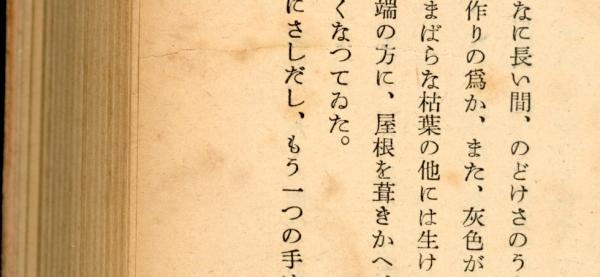 なに長い間、のどけさのう
作りの爲か、また、灰色が
まばらな枯葉の他には生け
端の方に、屋根を葺きかへ
くなつてゐた。
にさしだし、もう一つの手